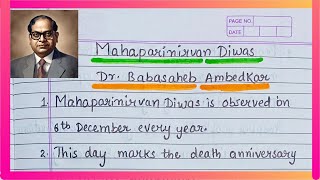 PAGE NO.
DATE
Mahaparinirvan Diwas
Dr. Babasaheb Ambedkar
1. Mahaparinirvan Diwas is observed on
6th December every year.
2. This day marks the death anniversary